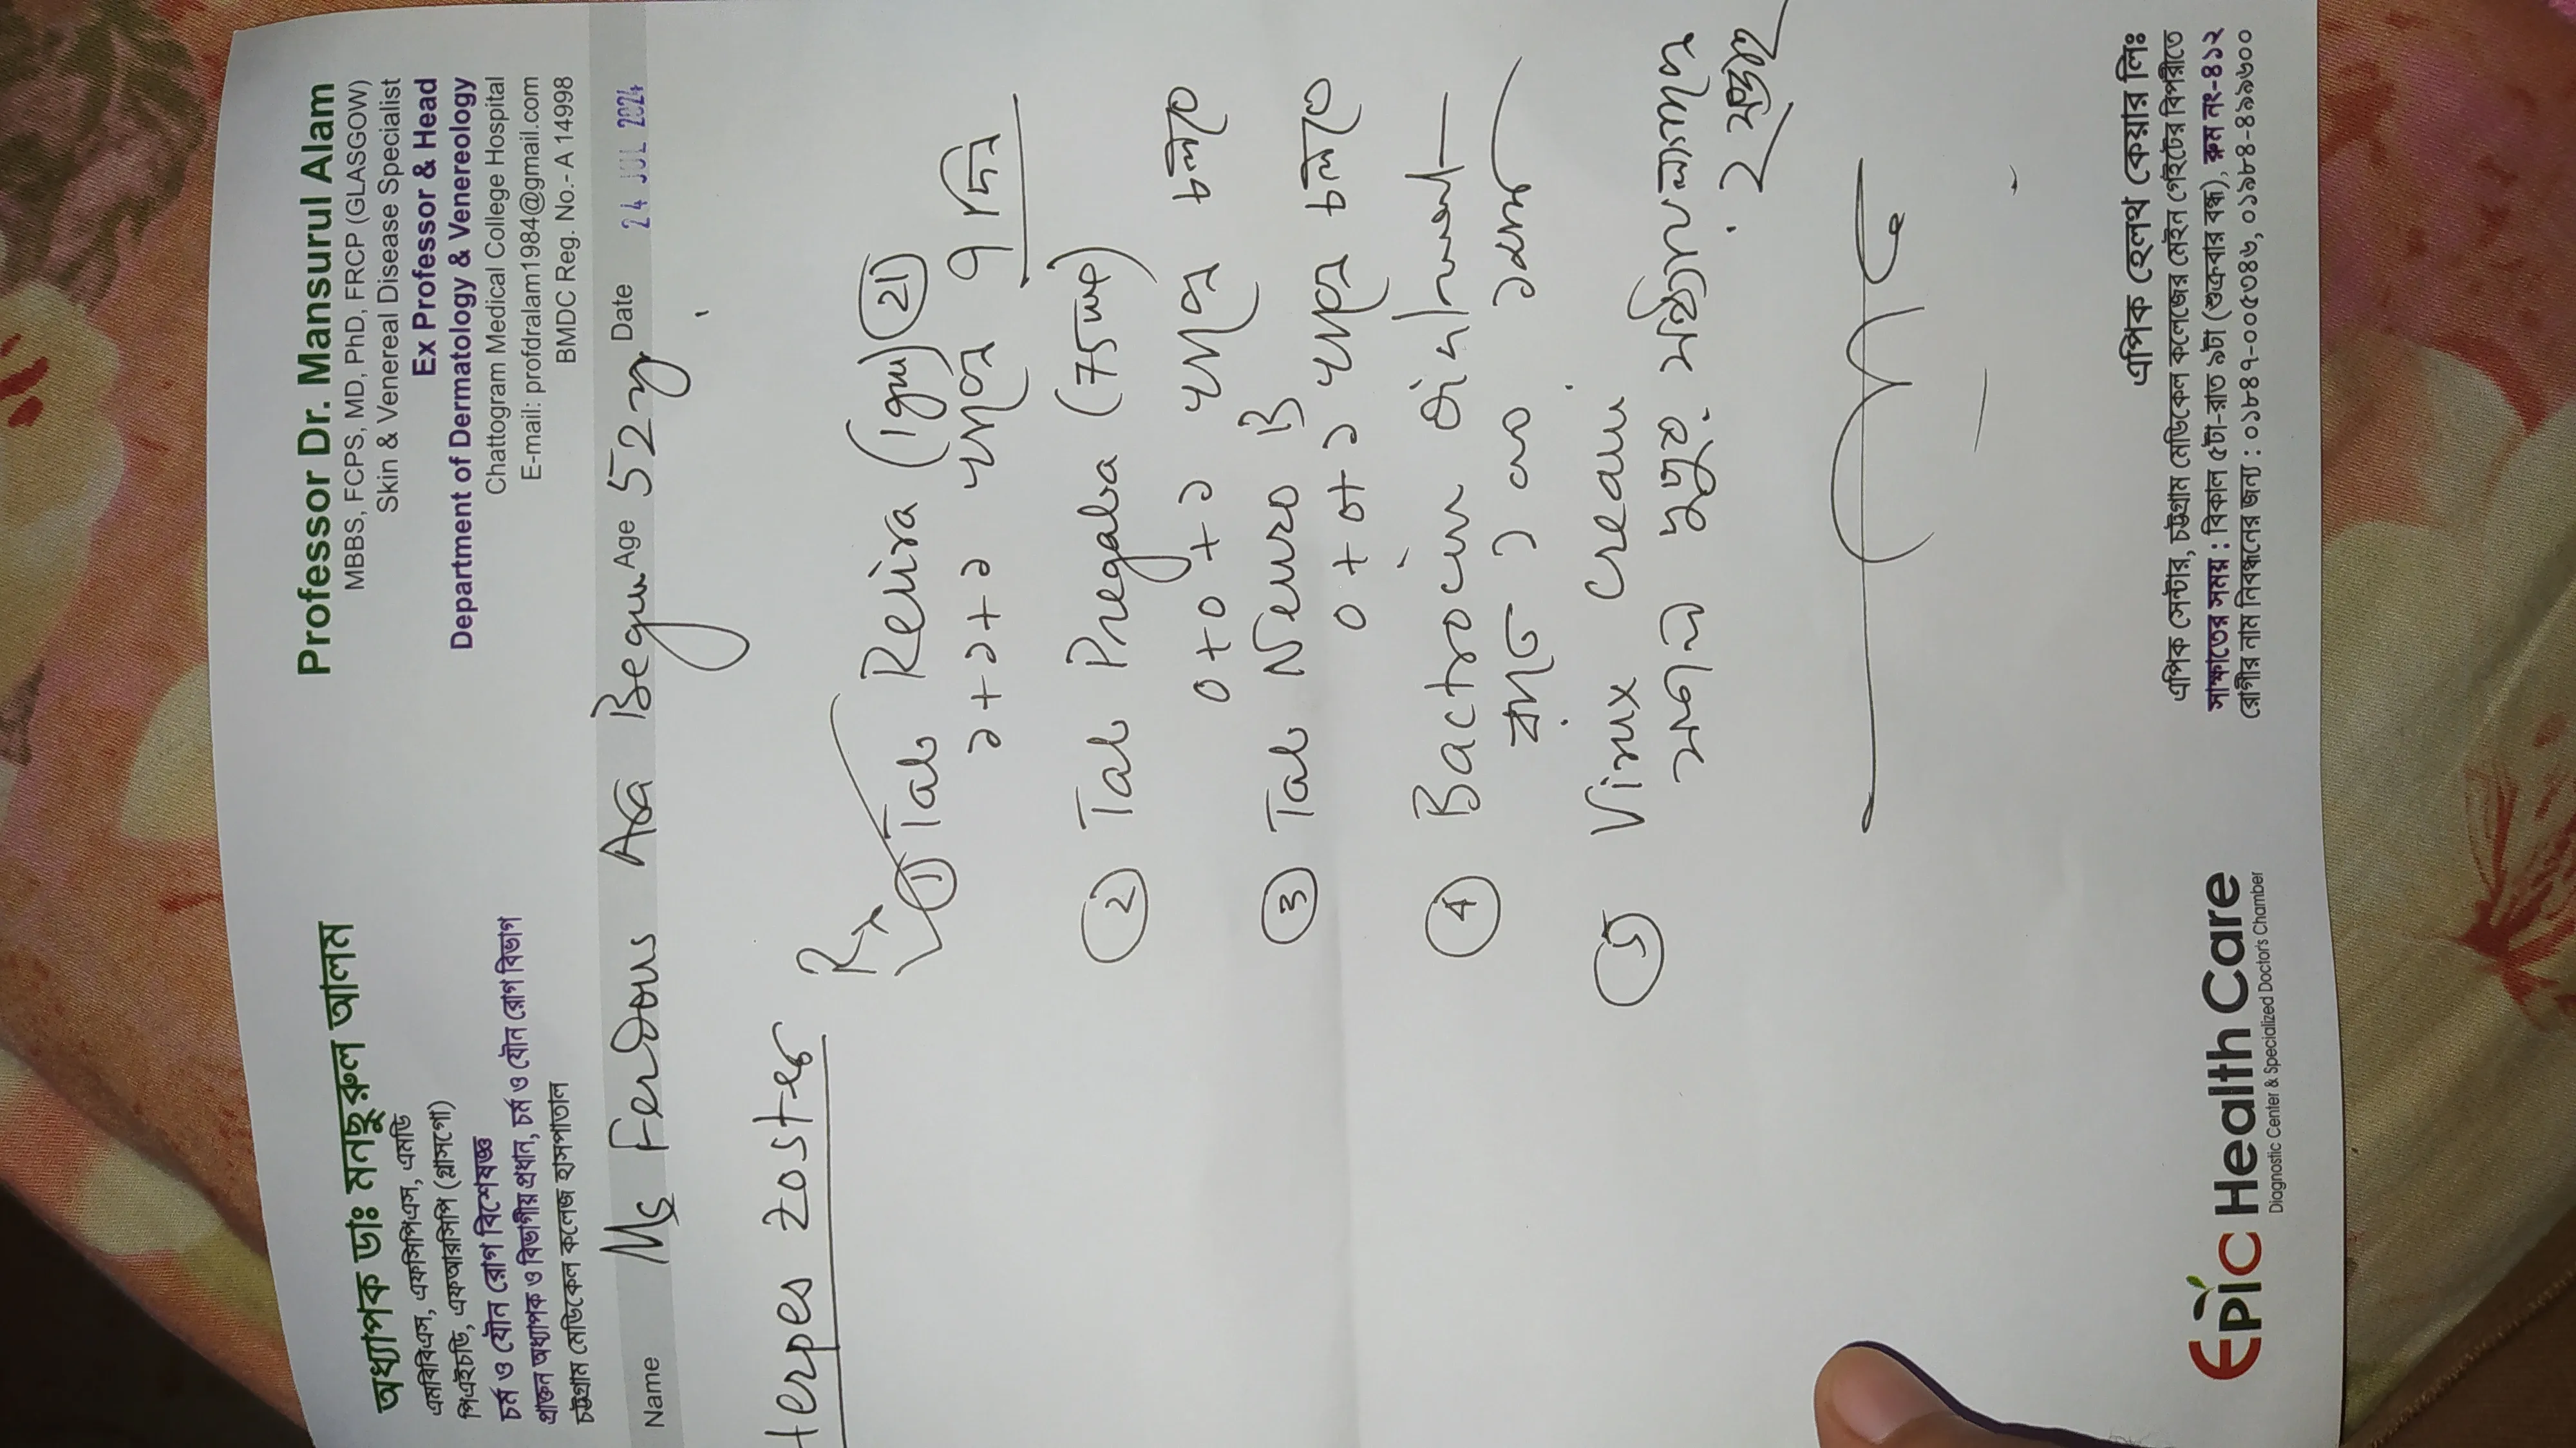 অধ্যাপক ডাঃ মনছুরুল আলম
এমবিবিএস, এফসিপিএস, এমডি
পিএইচডি, এফআরসিপি (গ্লাসগো)
চর্ম ও যৌন রোগ বিশেষজ্ঞ
প্রাক্তন অধ্যাপক ও বিভাগীয় প্রধান, চর্ম ও যৌন রোগ বিভাগ
চট্টগ্রাম মেডিকেল কলেজ হাসপাতাল
Professor Dr. Mansurul Alam
MBBS, FCPS, MD, PhD, FRCP (GLASGOW)
Skin & Venereal Disease Specialist
Ex Professor & Head
Department of Dermatology & Venereology
Chattogram Medical College Hospital
E-mail: profdralam1984@gmail.com
BMDC Reg. No.- A 14998
Name Ms Ferdous Ara Begum Age 52 y Date 24 JUL 2024
Herpes Zoster
Rx
1 Tab (1gm) 21
১+১+১ ৭ দিন
2 Tab Pregaba (75 mg)
0+0+১ চলবে
3 Tab Neuro B
0+0+১ চলবে
4 Bactrocin Ointment
রাতে ১ বার
5 Virux Cream
দুপুর
২ সপ্তাহ
Epic Health Care
Diagnostic Center & Specialized Doctor's Chamber
এপিক হেলথ কেয়ার লিঃ
এপিক সেন্টার, চট্টগ্রাম মেডিকেল কলেজের মেইন গেইটের বিপরীতে
সাক্ষাতের সময় : বিকাল ৫টা-রাত ৯টা (শুক্রবার বন্ধ), রুম নং-৪১২
রোগীর নাম নিবন্ধনের জন্য : ০১৮৪৭-০০৫৩৪৬, ০১৯৮৪-৪৯৯৬০০